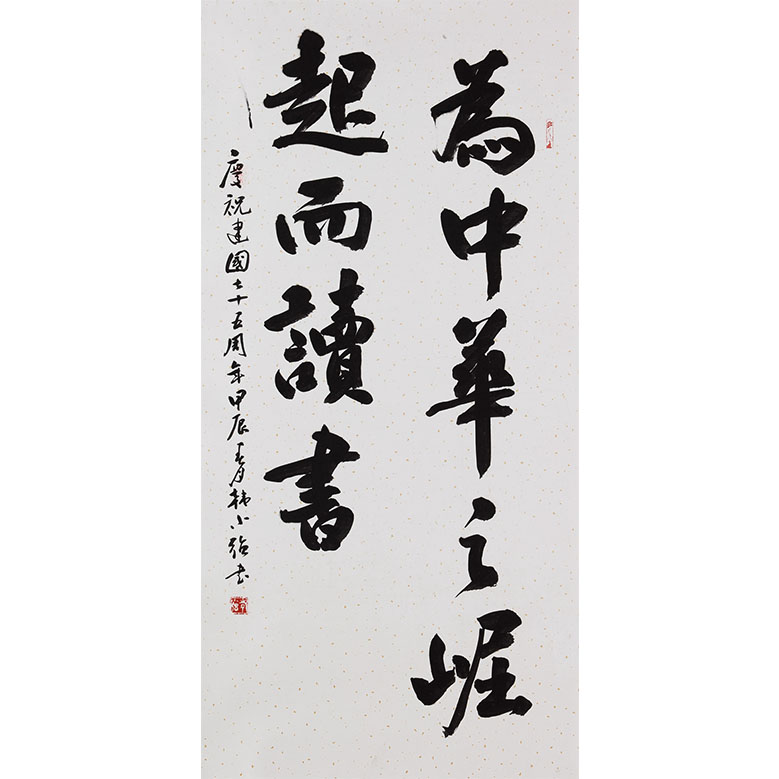 為中華之崛
起而讀書
慶祝建國七十五周年甲辰春月韩小强书